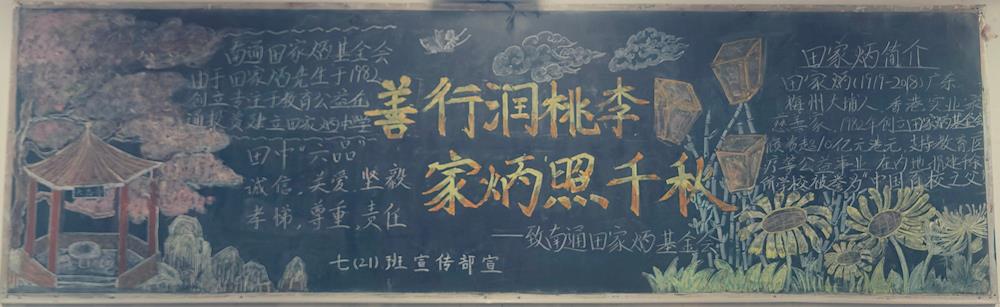 南通田家炳基金会
由于田家炳先生于1982
创立专注于教育公益在
通投资建立田家炳中学
田中“六品”
诚信,关爱,坚毅
孝悌,尊重,责任
善行润桃李
家炳照千秋
——致南通田家炳基金会
七(21)班宣传部宣
田家炳简介
田家炳(1919-2018)广东
梅州大埔人,香港实业家
慈善家,1982年创立田家炳基金会
超10亿元港元,支持教育医
疗等公益事业,在内地捐建
所学校被誉为“中国百校之父